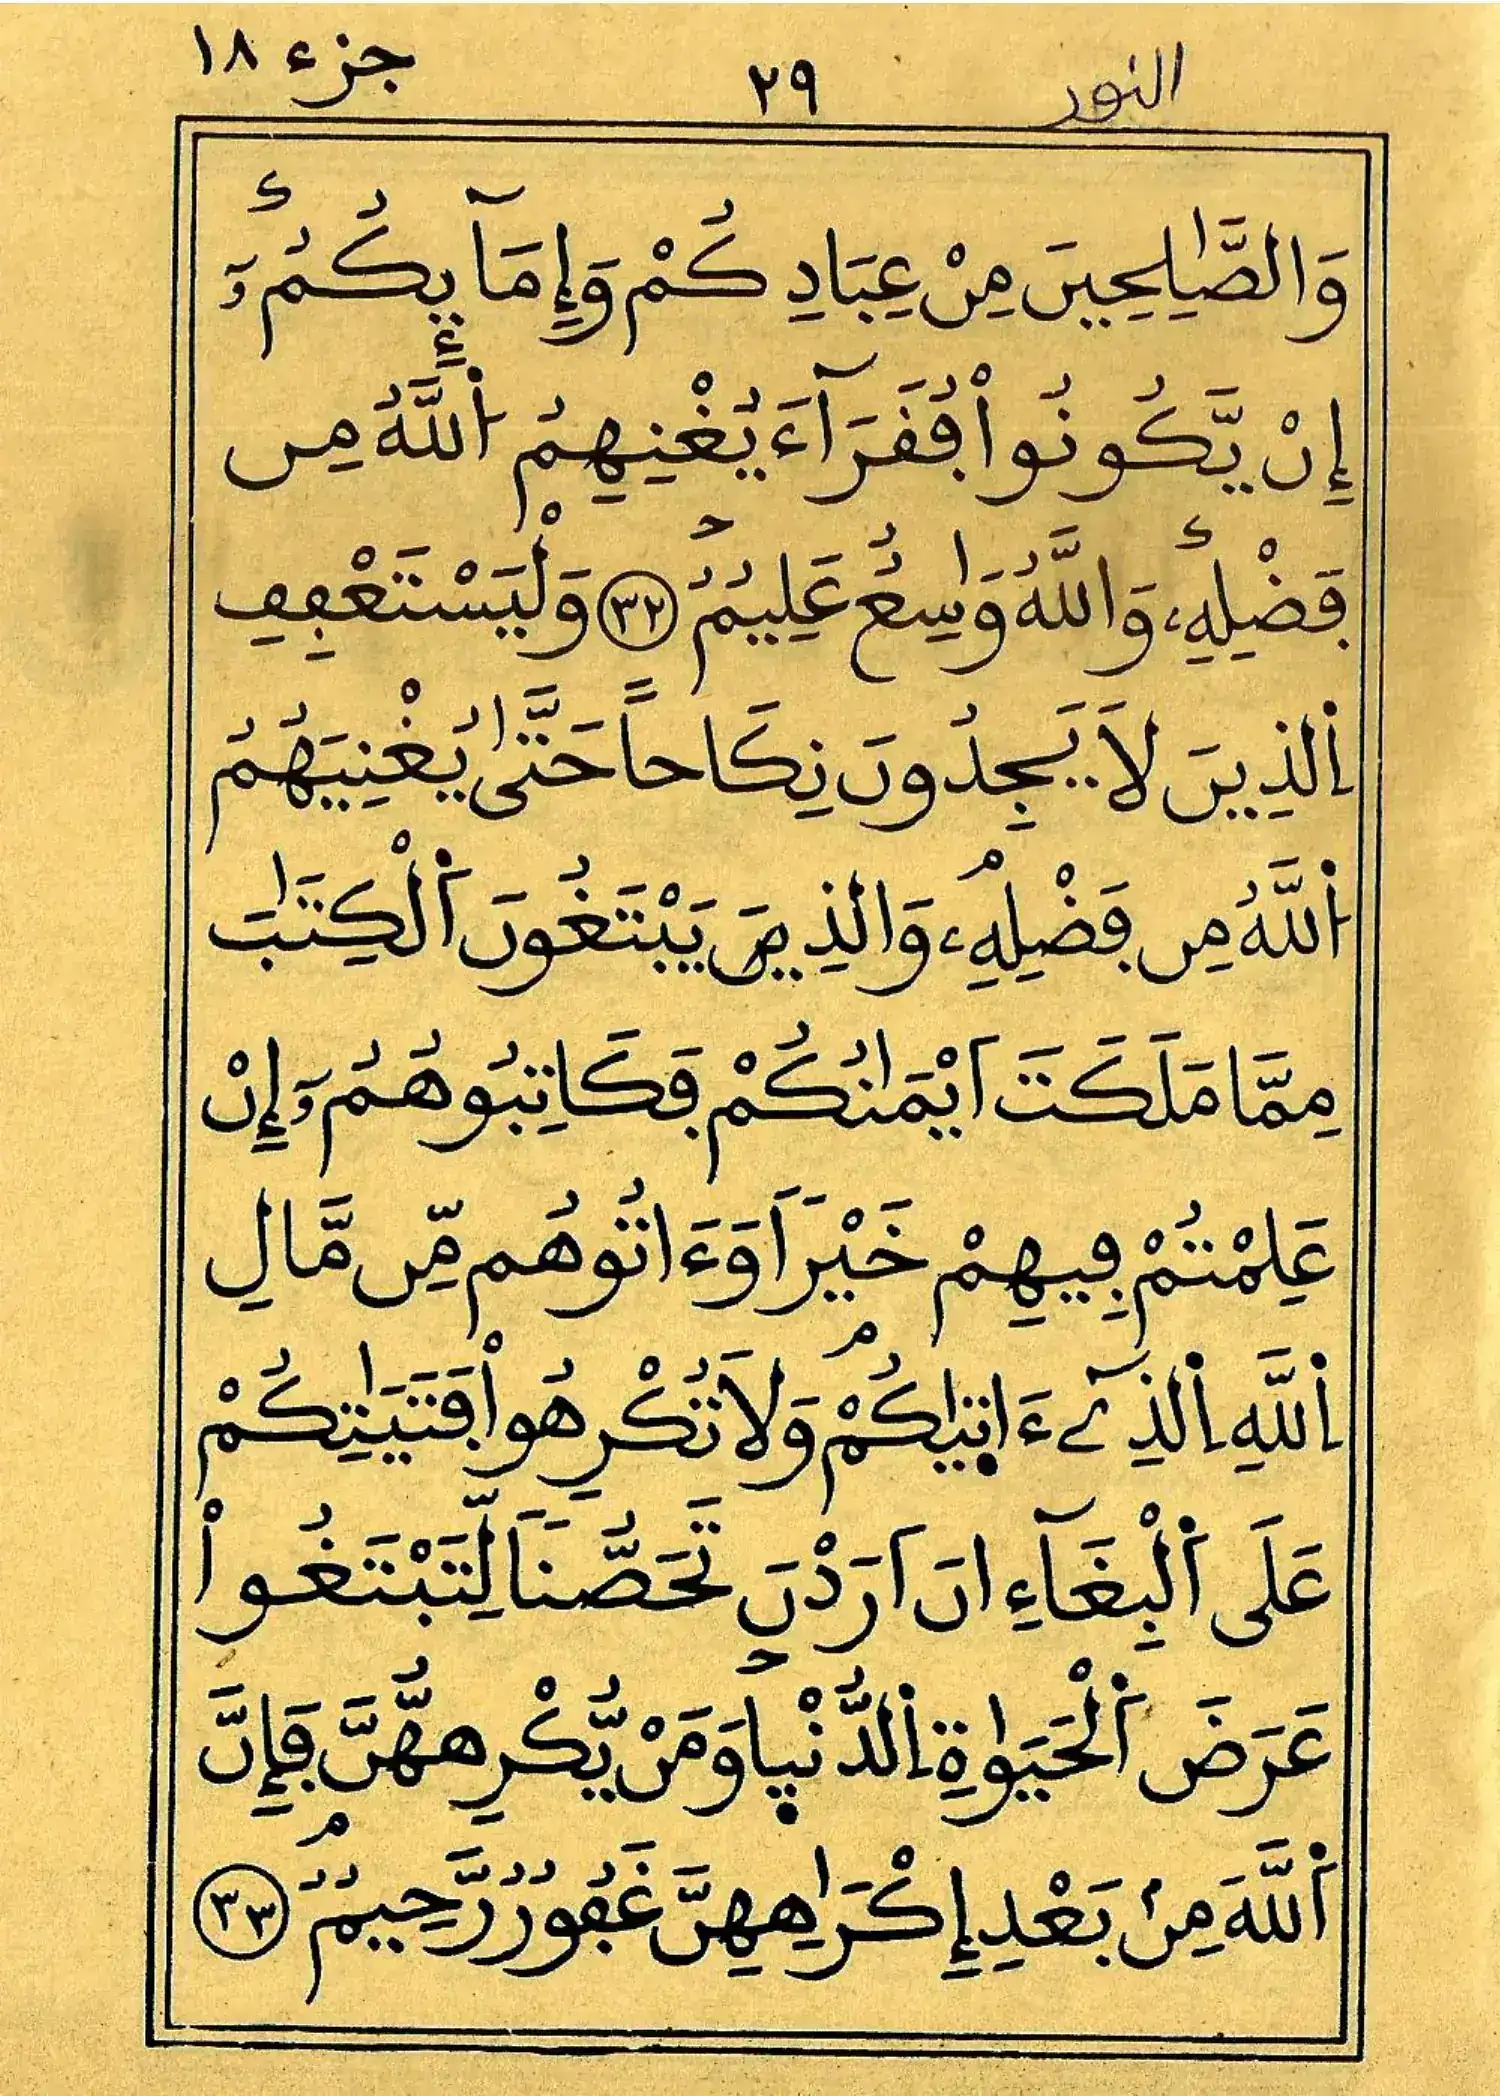 النور ٢٩ جزء ١٨
وَالصَّٰلِحِينَ مِنْ عِبَادِكُمْ وَإِمَآئِكُمُۥٓ
إِنْ يَّكُونُواْ فُقَرَآءَ يُغْنِهِمُ اُ۬للَّهُ مِن
فَضْلِهِۦ وَاللَّهُ وَٰسِعٌ عَلِيمٌ ٣٢ وَلْيَسْتَعْفِفِ
اِ۬لذِينَ لَا يَجِدُونَ نِكَاحاً حَتَّىٰ يُغْنِيَهُمُ
اُ۬للَّهُ مِن فَضْلِهِۦ وَالذِينَ يَبْتَغُونَ اَ۬لْكِتَٰبَ
مِمَّا مَلَكَتَ اَيْمَٰنُكُمْ فَكَاتِبُوهُمُۥٓ إِنْ
عَلِمْتُمْ فِيهِمْ خَيْراً وَءَاتُوهُم مِّن مَّالِ
اِ۬للَّهِ اِ۬لذِےٓ ءَاتَىٰكُمْ وَلَا تُكْرِهُواْ فَتَيَٰتِكُمْ
عَلَى اَ۬لْبِغَآءِ انَ اَرَدْنَ تَحَصُّناً لِّتَبْتَغُواْ
عَرَضَ اَ۬لْحَيَوٰةِ اِ۬لدُّنْيا وَمَنْ يُّكْرِههُّنَّ فَإِنَّ
اَ۬للَّهَ مِنۢ بَعْدِ إِكْرَٰهِهِنَّ غَفُورٌ رَّحِيمٌ ٣٣